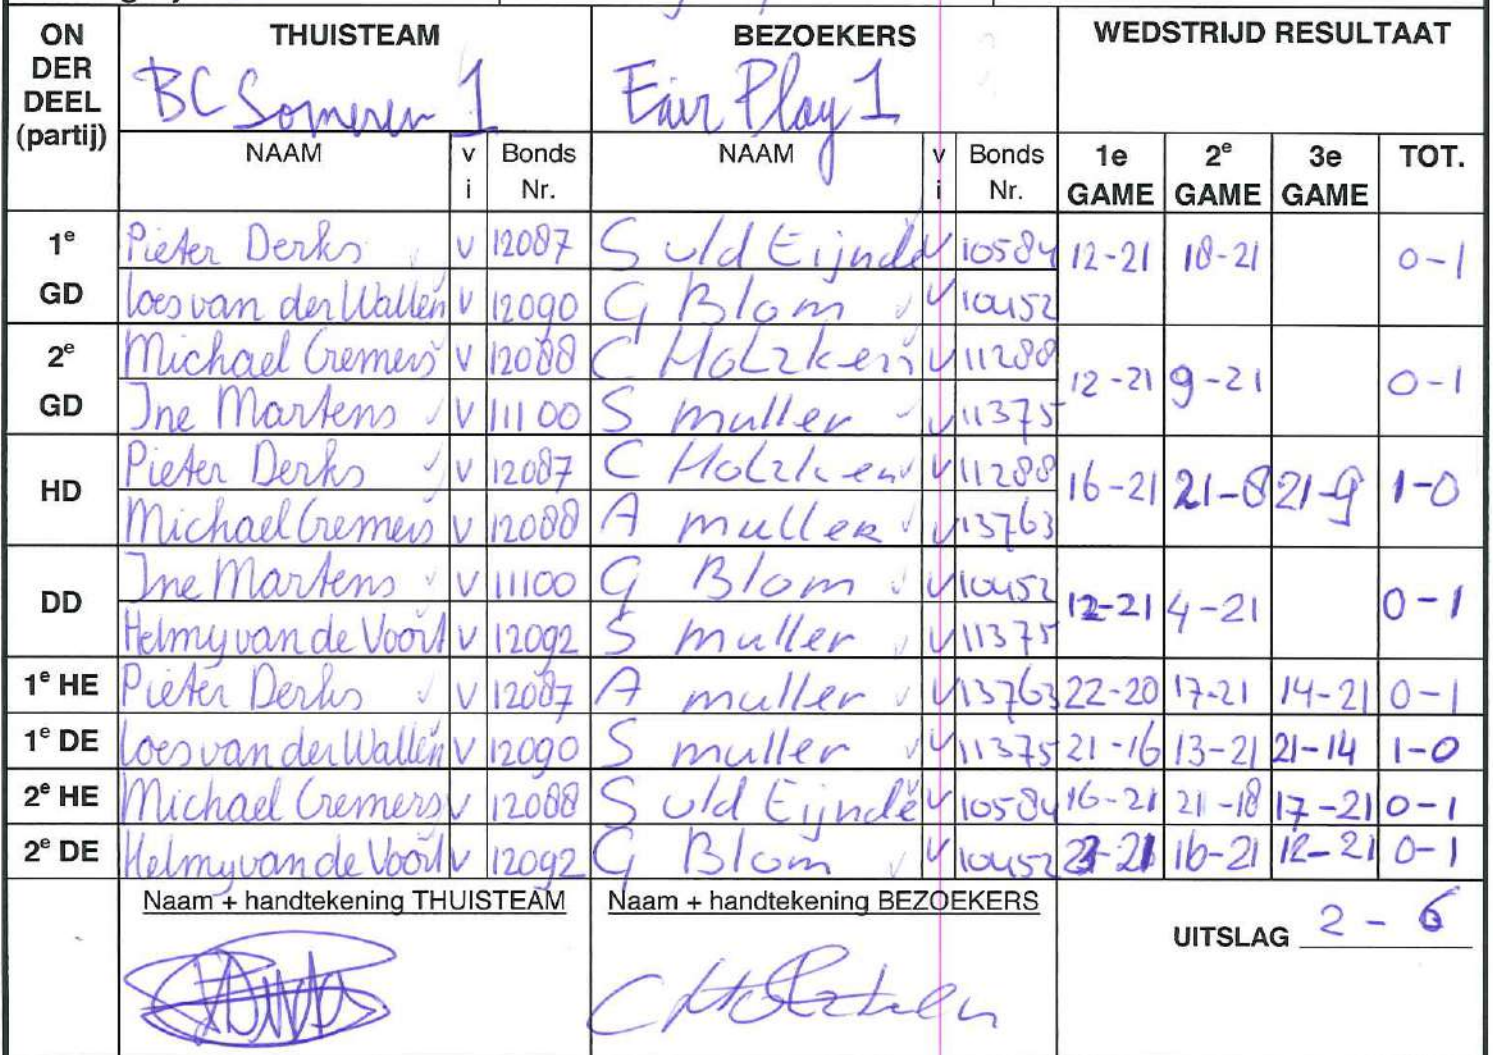 ON DER DEEL (partij) THUISTEAM BEZOEKERS WEDSTRIJD RESULTAAT
BC Someren 1 Fair Play 1
NAAM vi Bonds Nr. NAAM vi Bonds Nr. 1e GAME 2e GAME 3e GAME TOT.
1e GD Pieter Derks v 12087 S vld Eijnde v 10584 12-21 18-21 0-1
Loes van der Wallen v 12090 G Blom v 10452
2e GD Michael Cremers v 12088 C Holzken v 11288 12-21 9-21 0-1
Ine Martens v 11100 S muller v 11375
HD Pieter Derks v 12087 C Holzken v 11288 16-21 21-8 21-9 1-0
Michael Cremers v 12088 A muller v 13763
DD Ine Martens v 11100 G Blom v 10452 12-21 4-21 0-1
Helmy van de Voort v 12092 S muller v 11375
1e HE Pieter Derks v 12087 A muller v 13763 22-20 17-21 14-21 0-1
1e DE Loes van der Wallen v 12090 S muller v 11375 21-16 13-21 21-14 1-0
2e HE Michael Cremers v 12088 S vld Eijnde v 10584 16-21 21-18 17-21 0-1
2e DE Helmy van de Voort v 12092 G Blom v 10452 16-21 12-21 0-1
Naam + handtekening THUISTEAM Naam + handtekening BEZOEKERS
UITSLAG 2 - 6
C Holzken